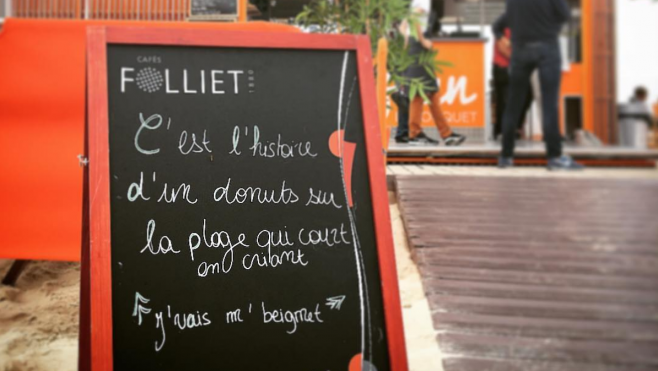 CAFÉS
FOLLIET
1880
C'est l'histoire
d'un donuts sur
la plage qui court
en criant
"j'vais m'beignet"
in
QUET